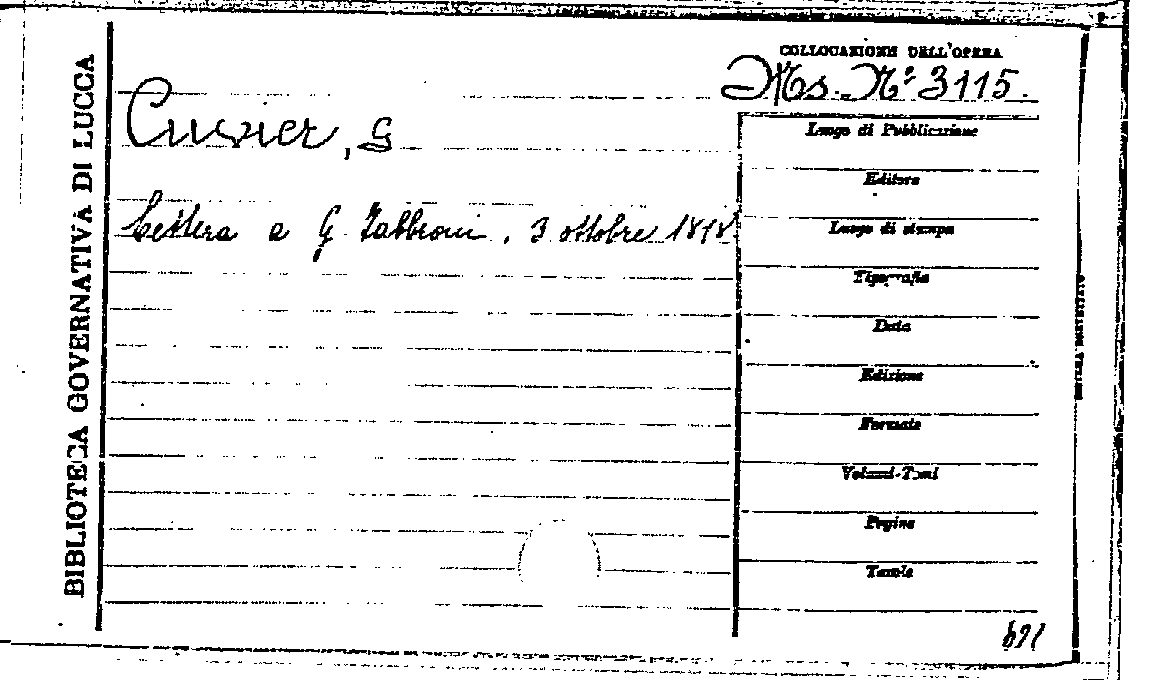 BIBLIOTECA GOVERNATIVA DI LUCCA
COLLOCAZIONE DELL'OPERA
Ms. Nº 3115.
Cuvier, G
Lettera a G Fabbroni, 3 ottobre 1818
Luogo di Pubblicazione
Editore
Luogo di stampa
Tipografia
Data
Edizione
Formato
Volumi-Tomi
Pagine
Tavole